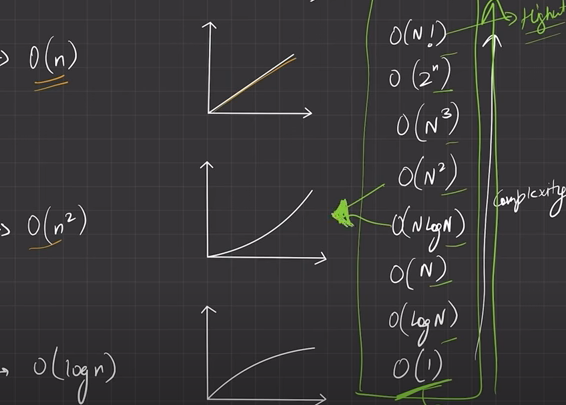 → O(n)
→ O(n²)
→ O(logn)
O(N!)
→ Highest
O(2ⁿ)
O(N³)
O(N²)
O(NlogN)
O(N)
O(logN)
O(1)
Complexity